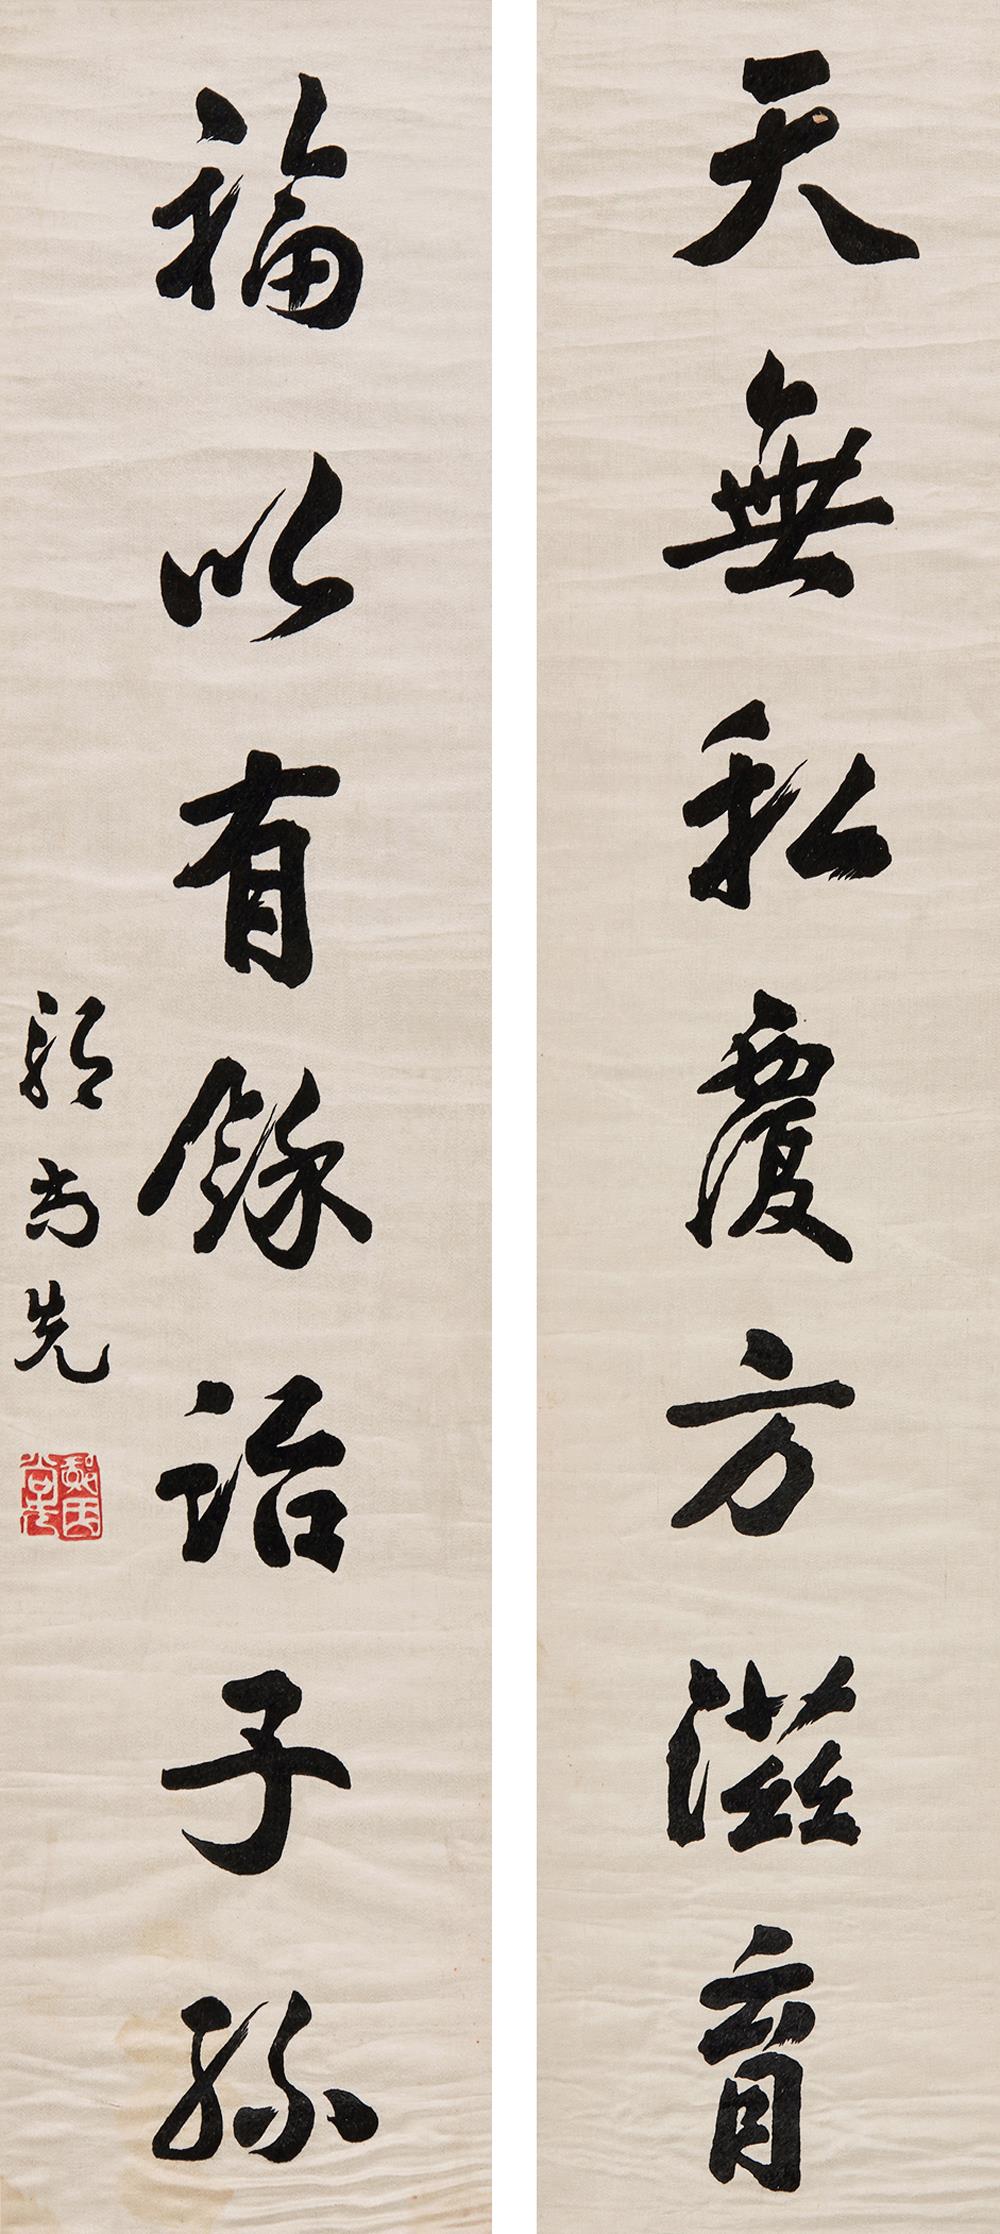 天無私覆方滋育
福以有餘詒子孫
郭尚先